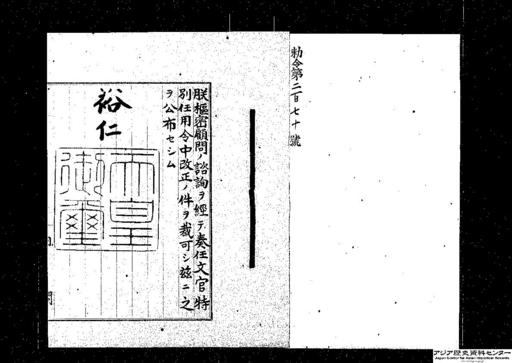 勅令第二百七十號
朕樞密顧問ノ諮詢ヲ經テ奏任文官特
別任用令中改正ノ件ヲ裁可シ茲ニ之
ヲ公布セシム
裕仁
天皇
御璽
アジア歴史資料センター
Japan Center for Asian Historical Records